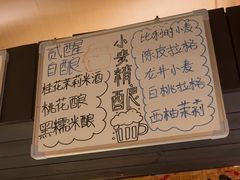 贰醒
自酿
桂花茉莉米酒
桃花酿
黑糯米酿
小麦精酿
比利时小麦
陈皮拉格
龙井小麦
白桃拉格
西柚茉莉